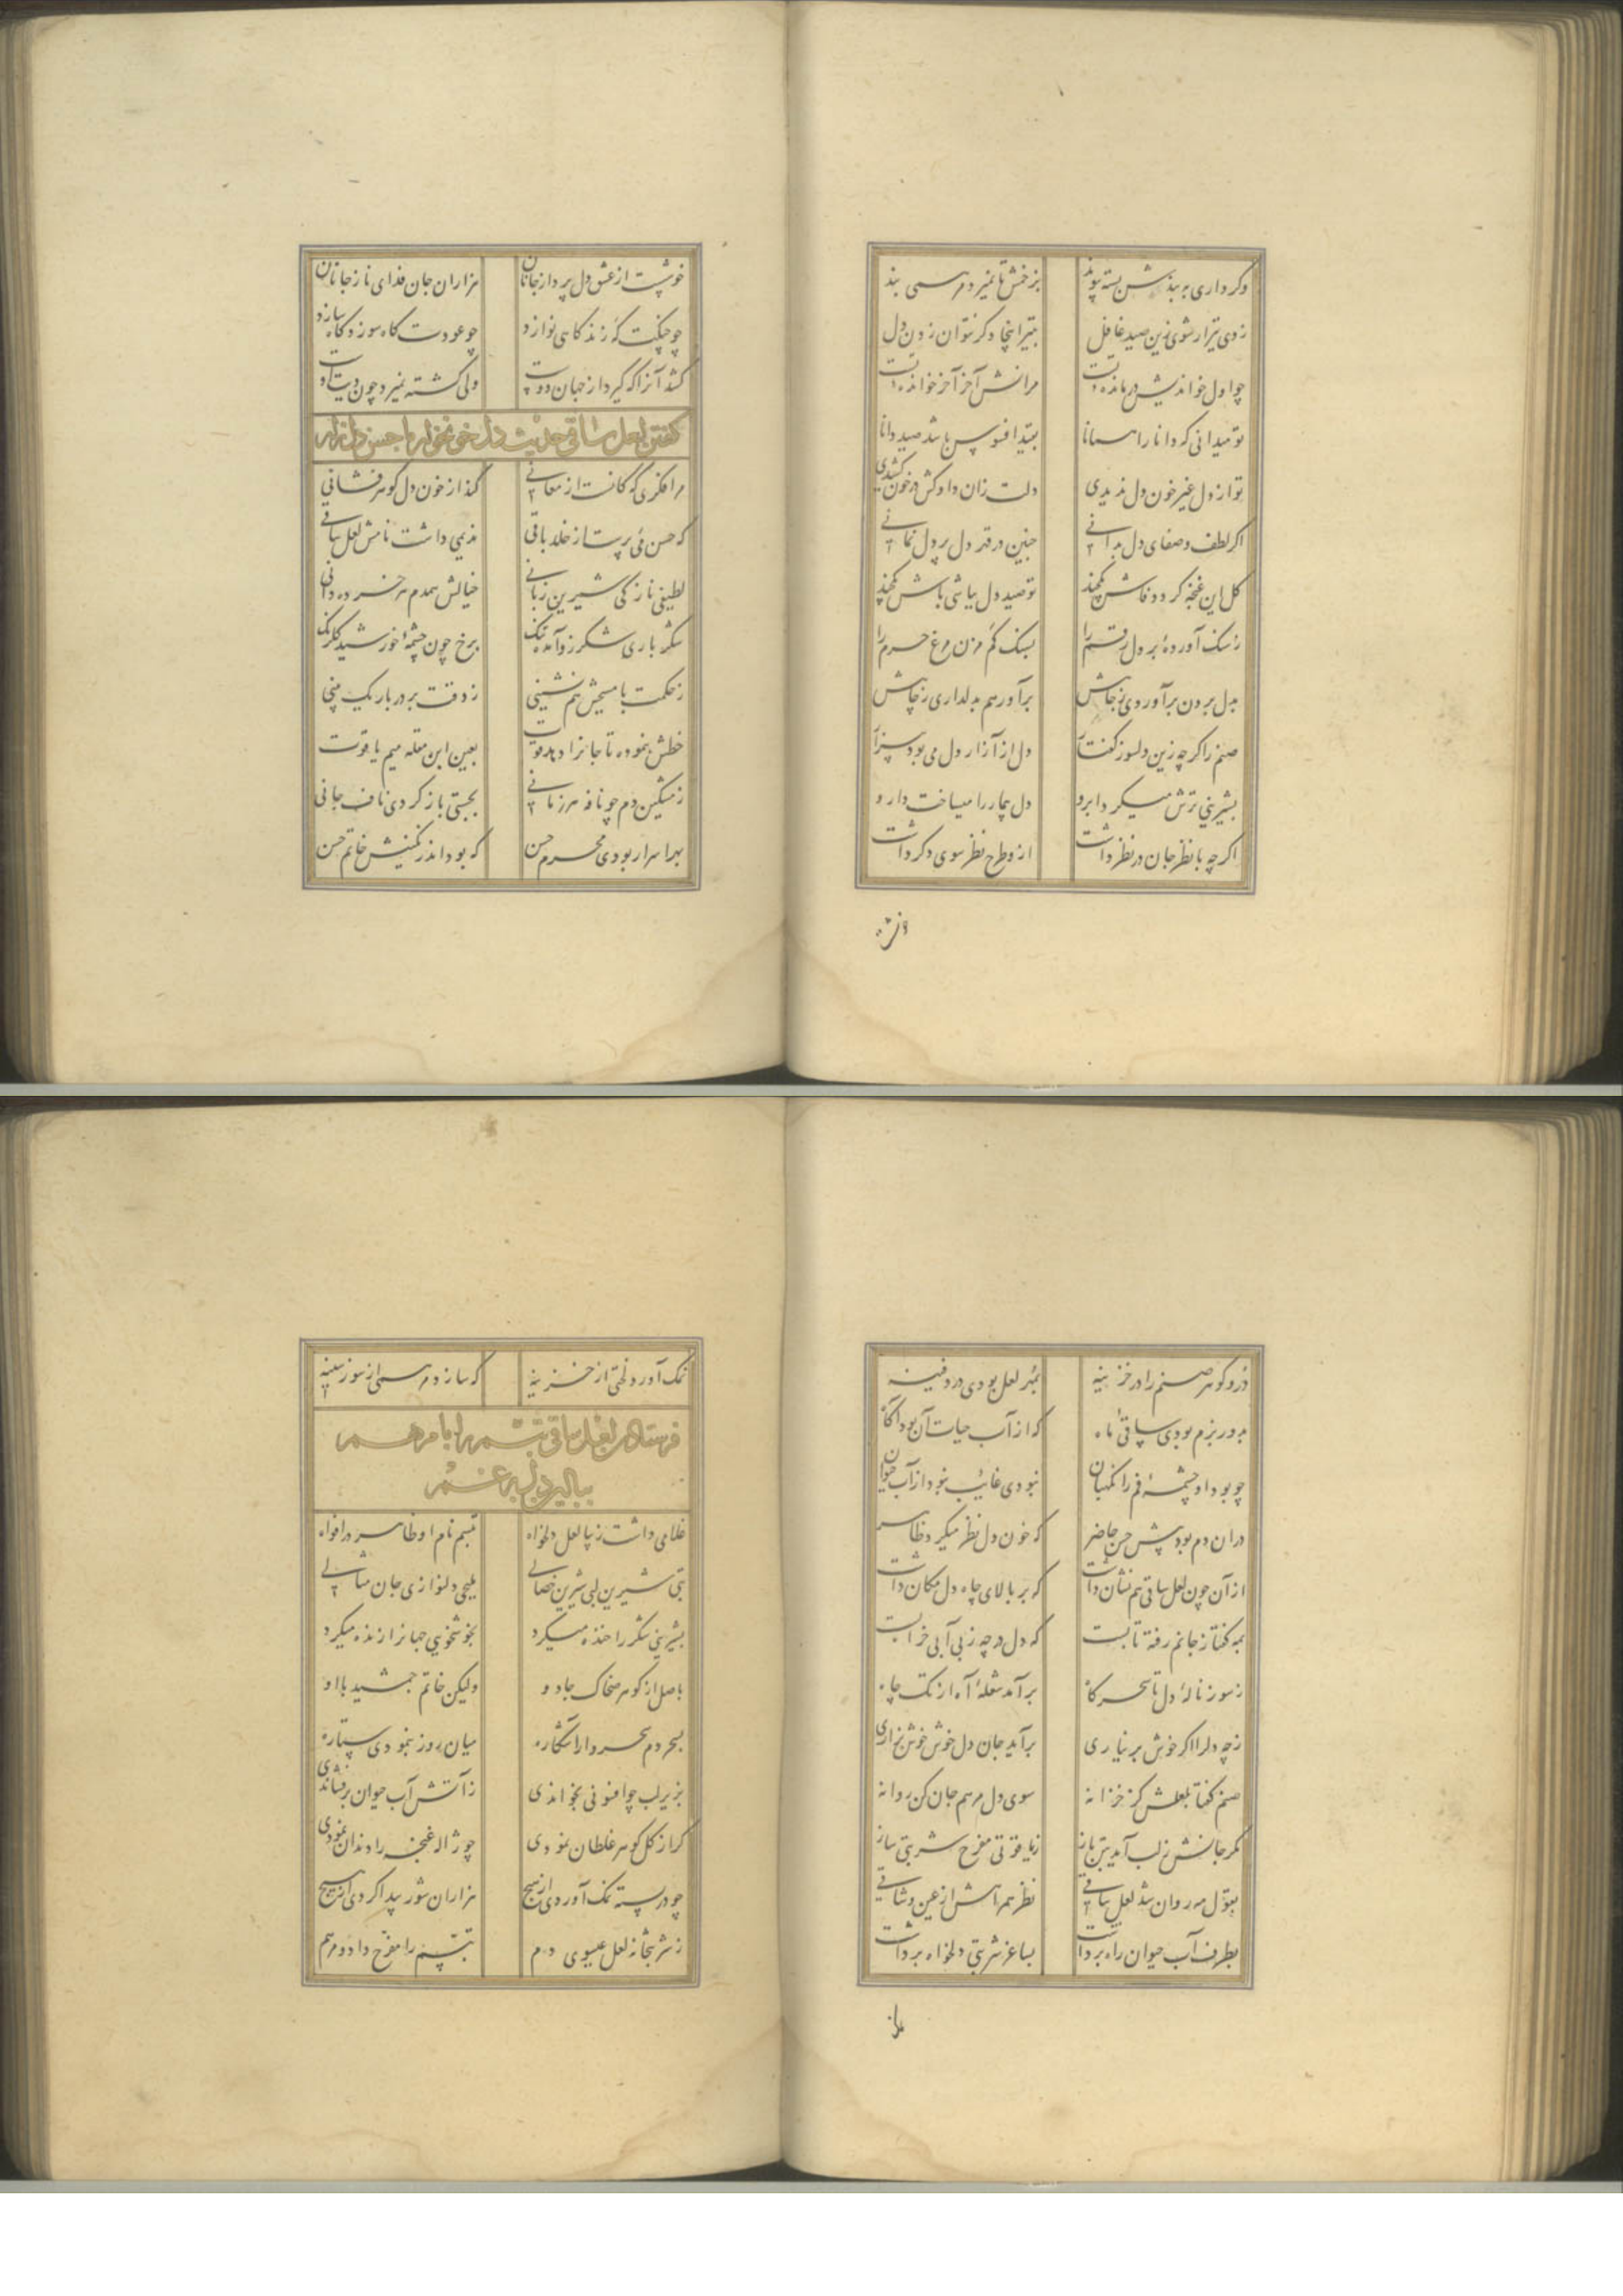 وکر داری به بندش بسته پیوند بزخمش تا نمیرد مرهمی بند
زدی تیرار شوی زین صید غافل بتیر اینجا دکر نتوان زدن دل
چو اول خواندیش درمانده مرانش آخر آخر خوانده
تو میدانی که دانا را همانا بقید افسوس باشد صید دانا
تو از دل غیر خون دل ندیدی دلت زان داد کش در خون کشیدی
اکر لطف و صفای دل بدانی چنین در قتد دل بر دل نمانی
کل این غنچه کردد فاش تو صید دل بپاشی باش
ز سنک آورده بر دل رقم را بسنک کم مزن مرغ حرم را
بدل بردن برآوردی ز جاهش برآور هم بدلداری ز چاهش
صنم را کرچه زین دلسوز کفتار دل از آزار دل می بود بیزار
بشیرینی ترش میکرد ابرو دل بیمار را میساخت دارو
اکر چه با نظر جان در نظر داشت ازو طرح نظر سوی دکر داشت
خوشست از عشق دل پرداز جانان هزاران جان فدای ناز جانان
چو چنکت که زند کاهی نوازد چو عودت کاه سوزد کاه سازد
کشد آنرا که کیرد از جهان دوست ولی کشته نمیرد چون دیت اوست
کفتن لعل ساقی حدیث دل خونخوار با حسن دل
مرا فکری که کانست از معانی کند از خون دل کوهر فشانی
که حسن می پرست از خلد باقی ندیمی داشت نامش لعل ساقی
لطیفی نازکی شیرین زبانی خیالش همدم هر خرده دانی
شکر باری شکر زو آمده تنک برخ چون چشمه خورشید کلرنک
ز حکمت با مسیحش هم نشینی ز دقت برده باریک بینی
خطش بنموده تا جانرا دهد قوت بعین ابن مقله میم یاقوت
ز مشکین دم چو نافه هر زمانی بجستی باز کردی ناف جانی
بهر اسرار بودی محرم حسن که بود اندر نکینش خاتم حسن
در و کوهر صنم را در خزینه بمهر لعل بودی در دفینه
بدور بزم بودی ساقی ماه که از آب حیات آن بود آکاه
چو بود او چشمه فم را نکهبان نبودی غایب نبود از آب حیوان
در ان دم بود پیش حسن حاضر که خون دل نظر میکرد ظاهر
از آن چون لعل ساقی هم نشان داشت که بر بالای چاه دل مکان داشت
بمه کفتا ز جانم رفته تابست که دل در چه ز بی آبی خرابست
ز سوز ناله دل تا سحرکاه برآمد شعله آه از تک چاه
ز چه دلرا اکر خوش بر نیاری برآید جان دل خوش خوش بزاری
صنم کفتا بلعلش کز خزانه سوی دل مرهم جان کن روانه
مکر جانش ز لب آید بتن باز ز یاقوتی مفرح شربتی ساز
بقول مه روان شد لعل ساقی نظر همراهش از عین وثاقی
بطرف آب حیوان راه برداشت بساغر شربتی دلخواه برداشت
نمک آورد لختی از خزینه که سازد مرهمی از سوز سینه
فرستادن لعل ساقی تبسم را با مرهم
ببالین دل
غلامی داشت زیبا لعل دلخواه تبسم نام او ظاهر در افواه
بتی شیرین لبی شیرین خصالی ملیحی دلنوازی جان مثالی
بشیرینی شکر را خنده میکرد بخوشخویی جهانرا زنده میکرد
باصل از کوهر ضحاک جادو ولیکن خاتم جمشید با او
بسحر دم سحر وار آشکاره میان روز بنمودی ستاره
بزیر لب چو افسونی بخواندی ز آتش آب حیوان برفشاندی
کر از کل کوهر غلطان نمودی چو ژاله غنچه را دندان نمودی
چو در پسته نمک آوردی از هیچ هزاران شور پیدا کردی از هیچ
ز شربتخانه لعل عیسوی دم تبسم را مفرح داد و مرهم